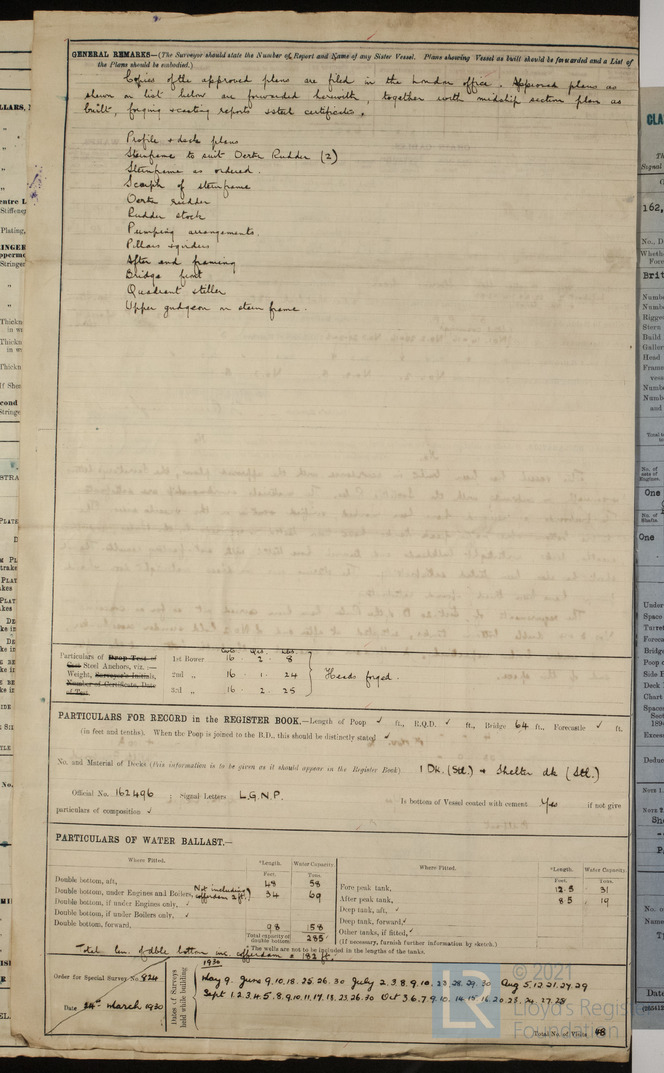 GENERAL REMARKS—(The Surveyor should state the Number of Report and Name of any Sister Vessel. Plans showing Vessel as built should be forwarded and a List of
the Plans should be embodied.)
Copies of the approved plans are filed in the London office. Approved plans as
shewn on list below are forwarded herewith, together with midship section plan as
built, forging & casting reports & steel certificates.
Profile & deck plans
Sternframe to suit Oertz Rudder (2)
Sternframe as ordered.
Scarph of sternframe
Oertz rudder
Rudder stock
Pumping arrangements.
Pillars & girders
After end framing
Bridge front
Quadrant & tiller
Upper gudgeon on stern frame.
Particulars of Drop Test of
Cast Steel Anchors, viz.:—
Weight, Surveyor's Initials,
Number of Certificate, Date
of Test
Cwts Qrs. Lbs
1st Bower 16 . 2 . 8
2nd „ 16 . 1 . 24
3rd „ 16 . 2 . 25
Heads forged.
PARTICULARS FOR RECORD in the REGISTER BOOK.—Length of Poop ✓ ft., R.Q.D. ✓ ft., Bridge 64 ft., Forecastle ✓ ft.
(in feet and tenths). When the Poop is joined to the B.D., this should be distinctly stated ✓
No. and Material of Decks (this information is to be given as it should appear in the Register Book) 1 Dk. (Stl.) & Shelter dk (Stl.)
Official No. 162496 ; Signal Letters L.G.N.P. Is bottom of Vessel coated with cement Yes if not give
particulars of composition ✓
PARTICULARS OF WATER BALLAST.—
Where Fitted. *Length. Water Capacity. Where Fitted. *Length. Water Capacity.
Feet. Tons. Feet. Tons.
Double bottom, aft, 48 58 Fore peak tank, 12.5 31
Double bottom, under Engines and Boilers, Not including cofferdam 2 ft. 34 69 After peak tank, 8.5 19
Double bottom, if under Engines only, ✓ Deep tank, aft, ✓
Double bottom, if under Boilers only, ✓ Deep tank, forward, ✓
Double bottom, forward, 98 158 Other tanks, if fitted, ✓
Total capacity of double bottom 285 (If necessary, furnish further information by sketch.)
*The walls are not to be included in the lengths of the tanks.
Total len. of dble bottom inc. cofferdam = 182 ft.
Order for Special Survey No. 824
Date 24th March 1930
Dates of Surveys
held while building
1930
May 9. June 9.10.18.25.26.30 July 2.3.8.9.10.23.28.29.30 Aug 5.12.21.27.29
Sept 1.2.3.4.5.8.9.10.11.17.18.23.26.30 Oct 3.6.7.9.10.14.15.16.20.23.24.27.28
Total No. of Visits 48
© 2021
Lloyd's Register
Foundation
LR